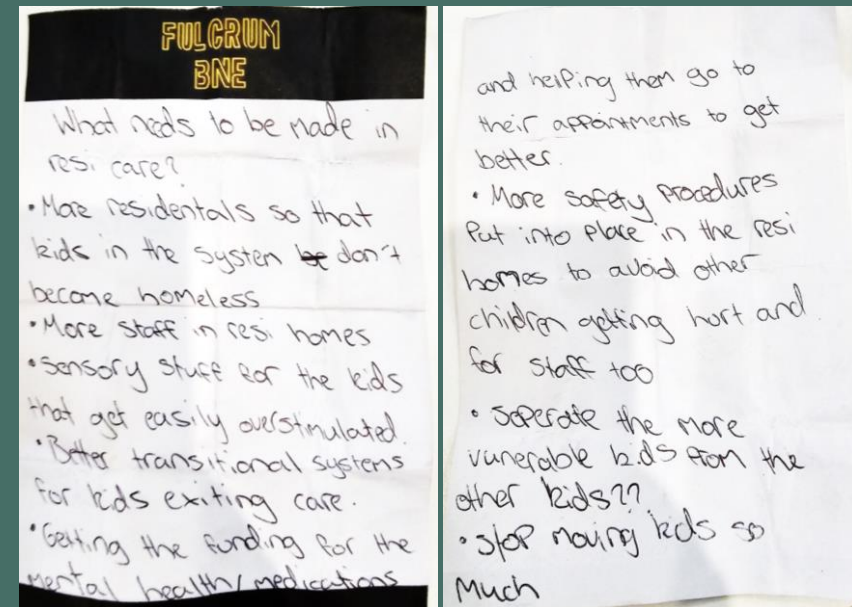 FULCRUM
BNE
What needs to be made in
resi care?
• More residentals so that
kids in the system be don't
become homeless
• More staff in resi homes
• Sensory stuff for the kids
that get easily overstimulated.
• Better transitional systems
for kids exiting care.
• Getting the funding for the
mental health/medications
and helping them go to
their appointments to get
better.
• More safety procedures
Put into place in the resi
homes to avoid other
children getting hurt and
for staff too
• Seperate the more
vunerable kids from the
other kids??
• Stop moving kids so
Much